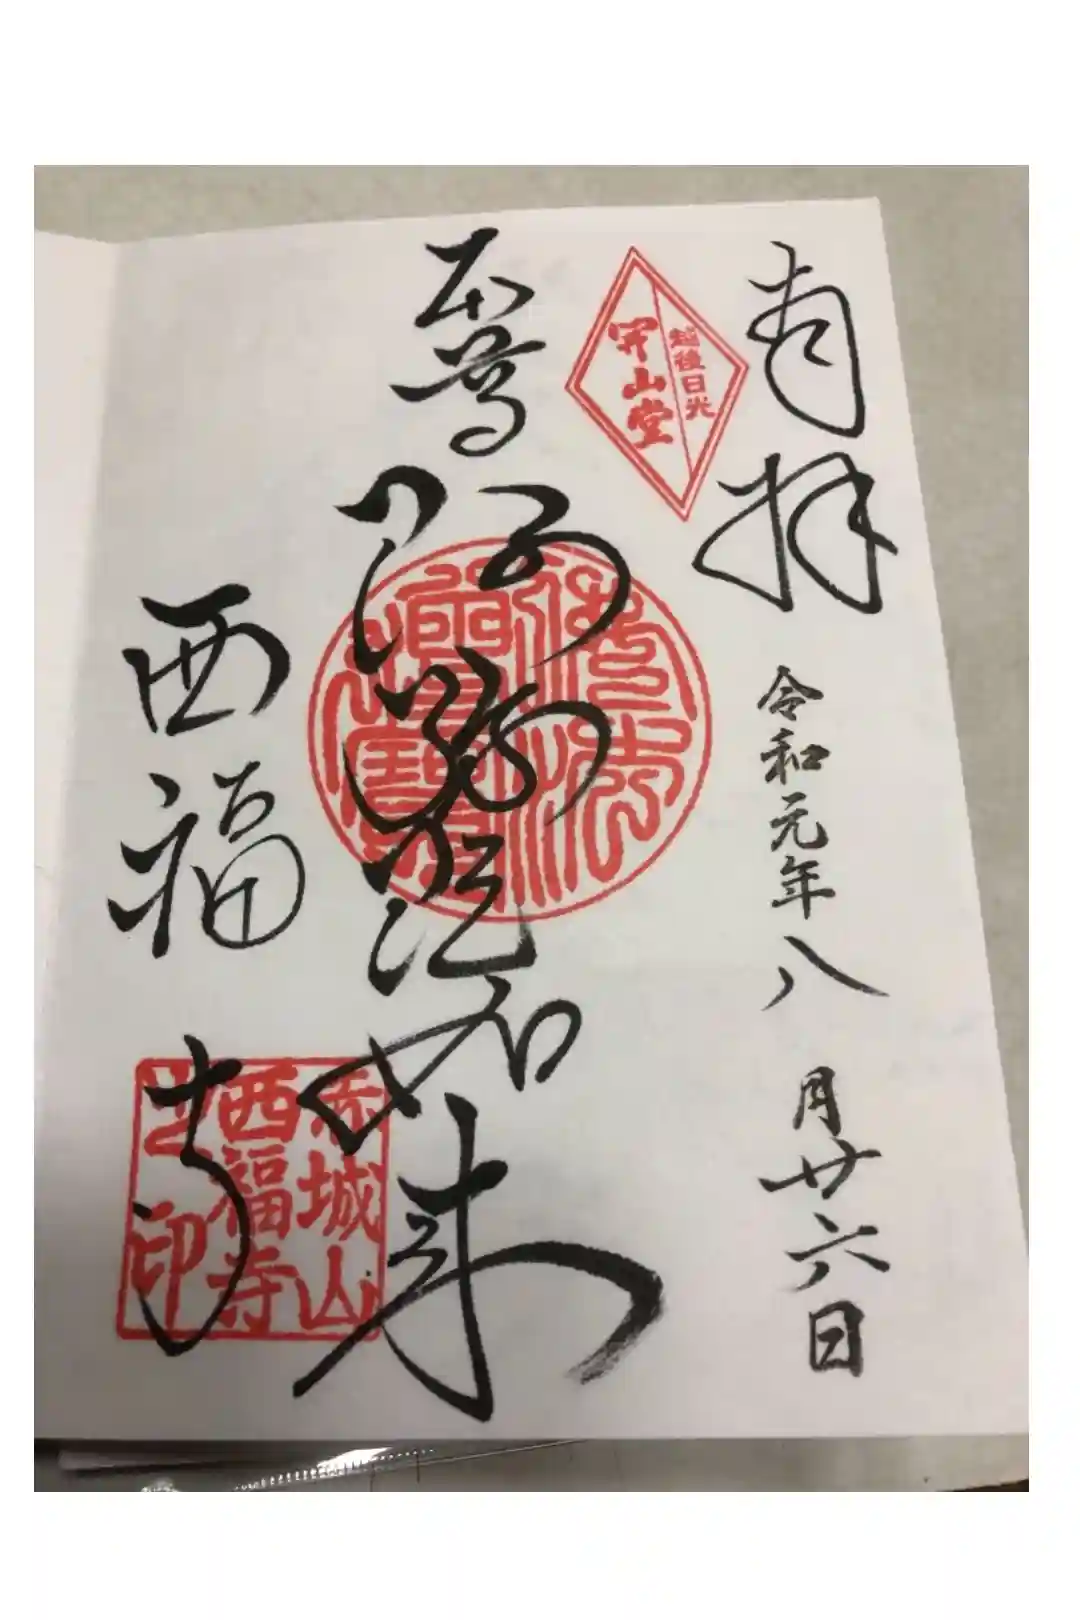 奉拝
令和元年八月廿六日
越後日光
開山堂
本尊
阿弥陀如来
佛法
僧寶
西福寺
赤城山
西福寺
之印